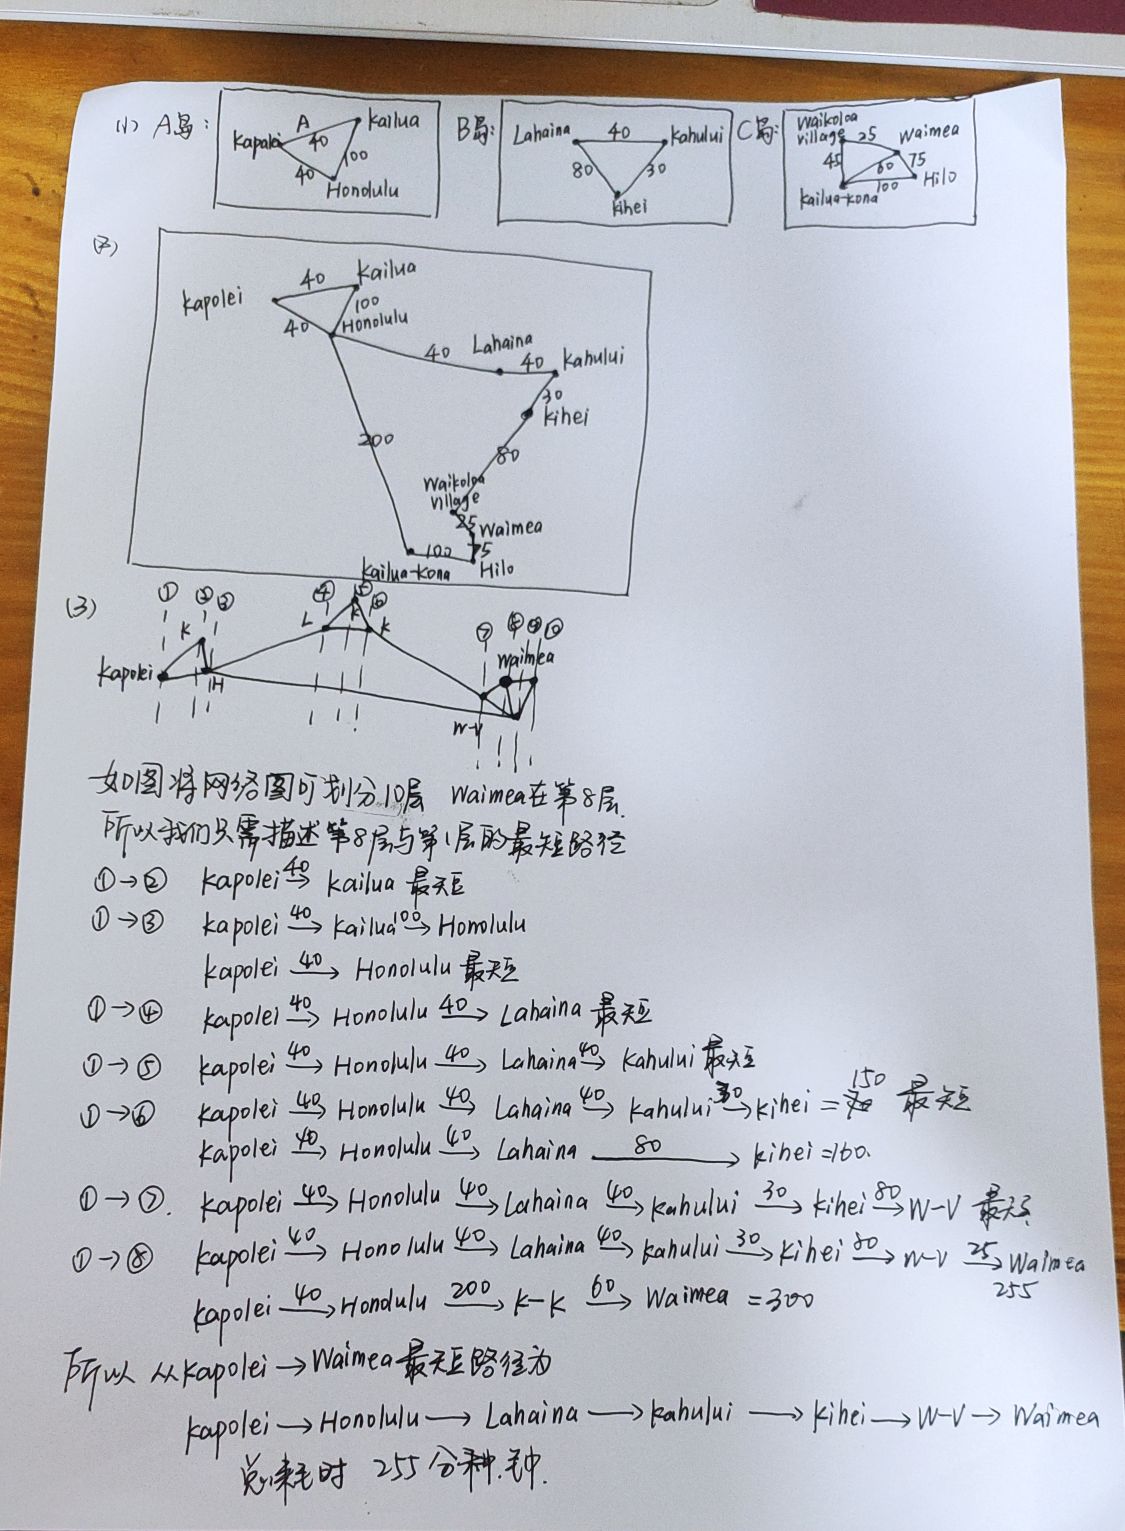 (1) A岛: B岛: C岛:
A
Kapolei 40 Kailua
40 100
Honolulu
Lahaina 40 Kahului
80 30
Kihei
Waikoloa
village 25 Waimea
45 60 75
Kailua-kona 100 Hilo
(2)
Kapolei 40 Kailua
40 100 Honolulu
40 Lahaina 40 Kahului
30
Kihei
200 80
Waikoloa
village
25 Waimea
75
100
Kailua-kona Hilo
(3)
① ② ③ ④ ⑤ ⑥ ⑦ ⑧ ⑨ ⑩
Kapolei K H L K K W-V Waimea
如图将网络图可划分10层 Waimea在第8层.
所以我们只需描述第8层与第1层的最短路径
①→② Kapolei 40→ Kailua 最短
①→③ Kapolei 40→ Kailua 100→ Honolulu
Kapolei 40→ Honolulu 最短
①→④ Kapolei 40→ Honolulu 40→ Lahaina 最短
①→⑤ Kapolei 40→ Honolulu 40→ Lahaina 40→ Kahului 最短
①→⑥ Kapolei 40→ Honolulu 40→ Lahaina 40→ Kahului 30→ Kihei = 150 最短
Kapolei 40→ Honolulu 40→ Lahaina 80→ Kihei =160.
①→⑦. Kapolei 40→ Honolulu 40→ Lahaina 40→ Kahului 30→ Kihei 80→ W-V 最短
①→⑧ Kapolei 40→ Honolulu 40→ Lahaina 40→ Kahului 30→ Kihei 80→ W-V 25→ Waimea
255
Kapolei 40→ Honolulu 200→ K-K 60→ Waimea =300
所以 从Kapolei→Waimea最短路径为
Kapolei→Honolulu→Lahaina→Kahului→Kihei→W-V→Waimea
总耗时 255分钟.